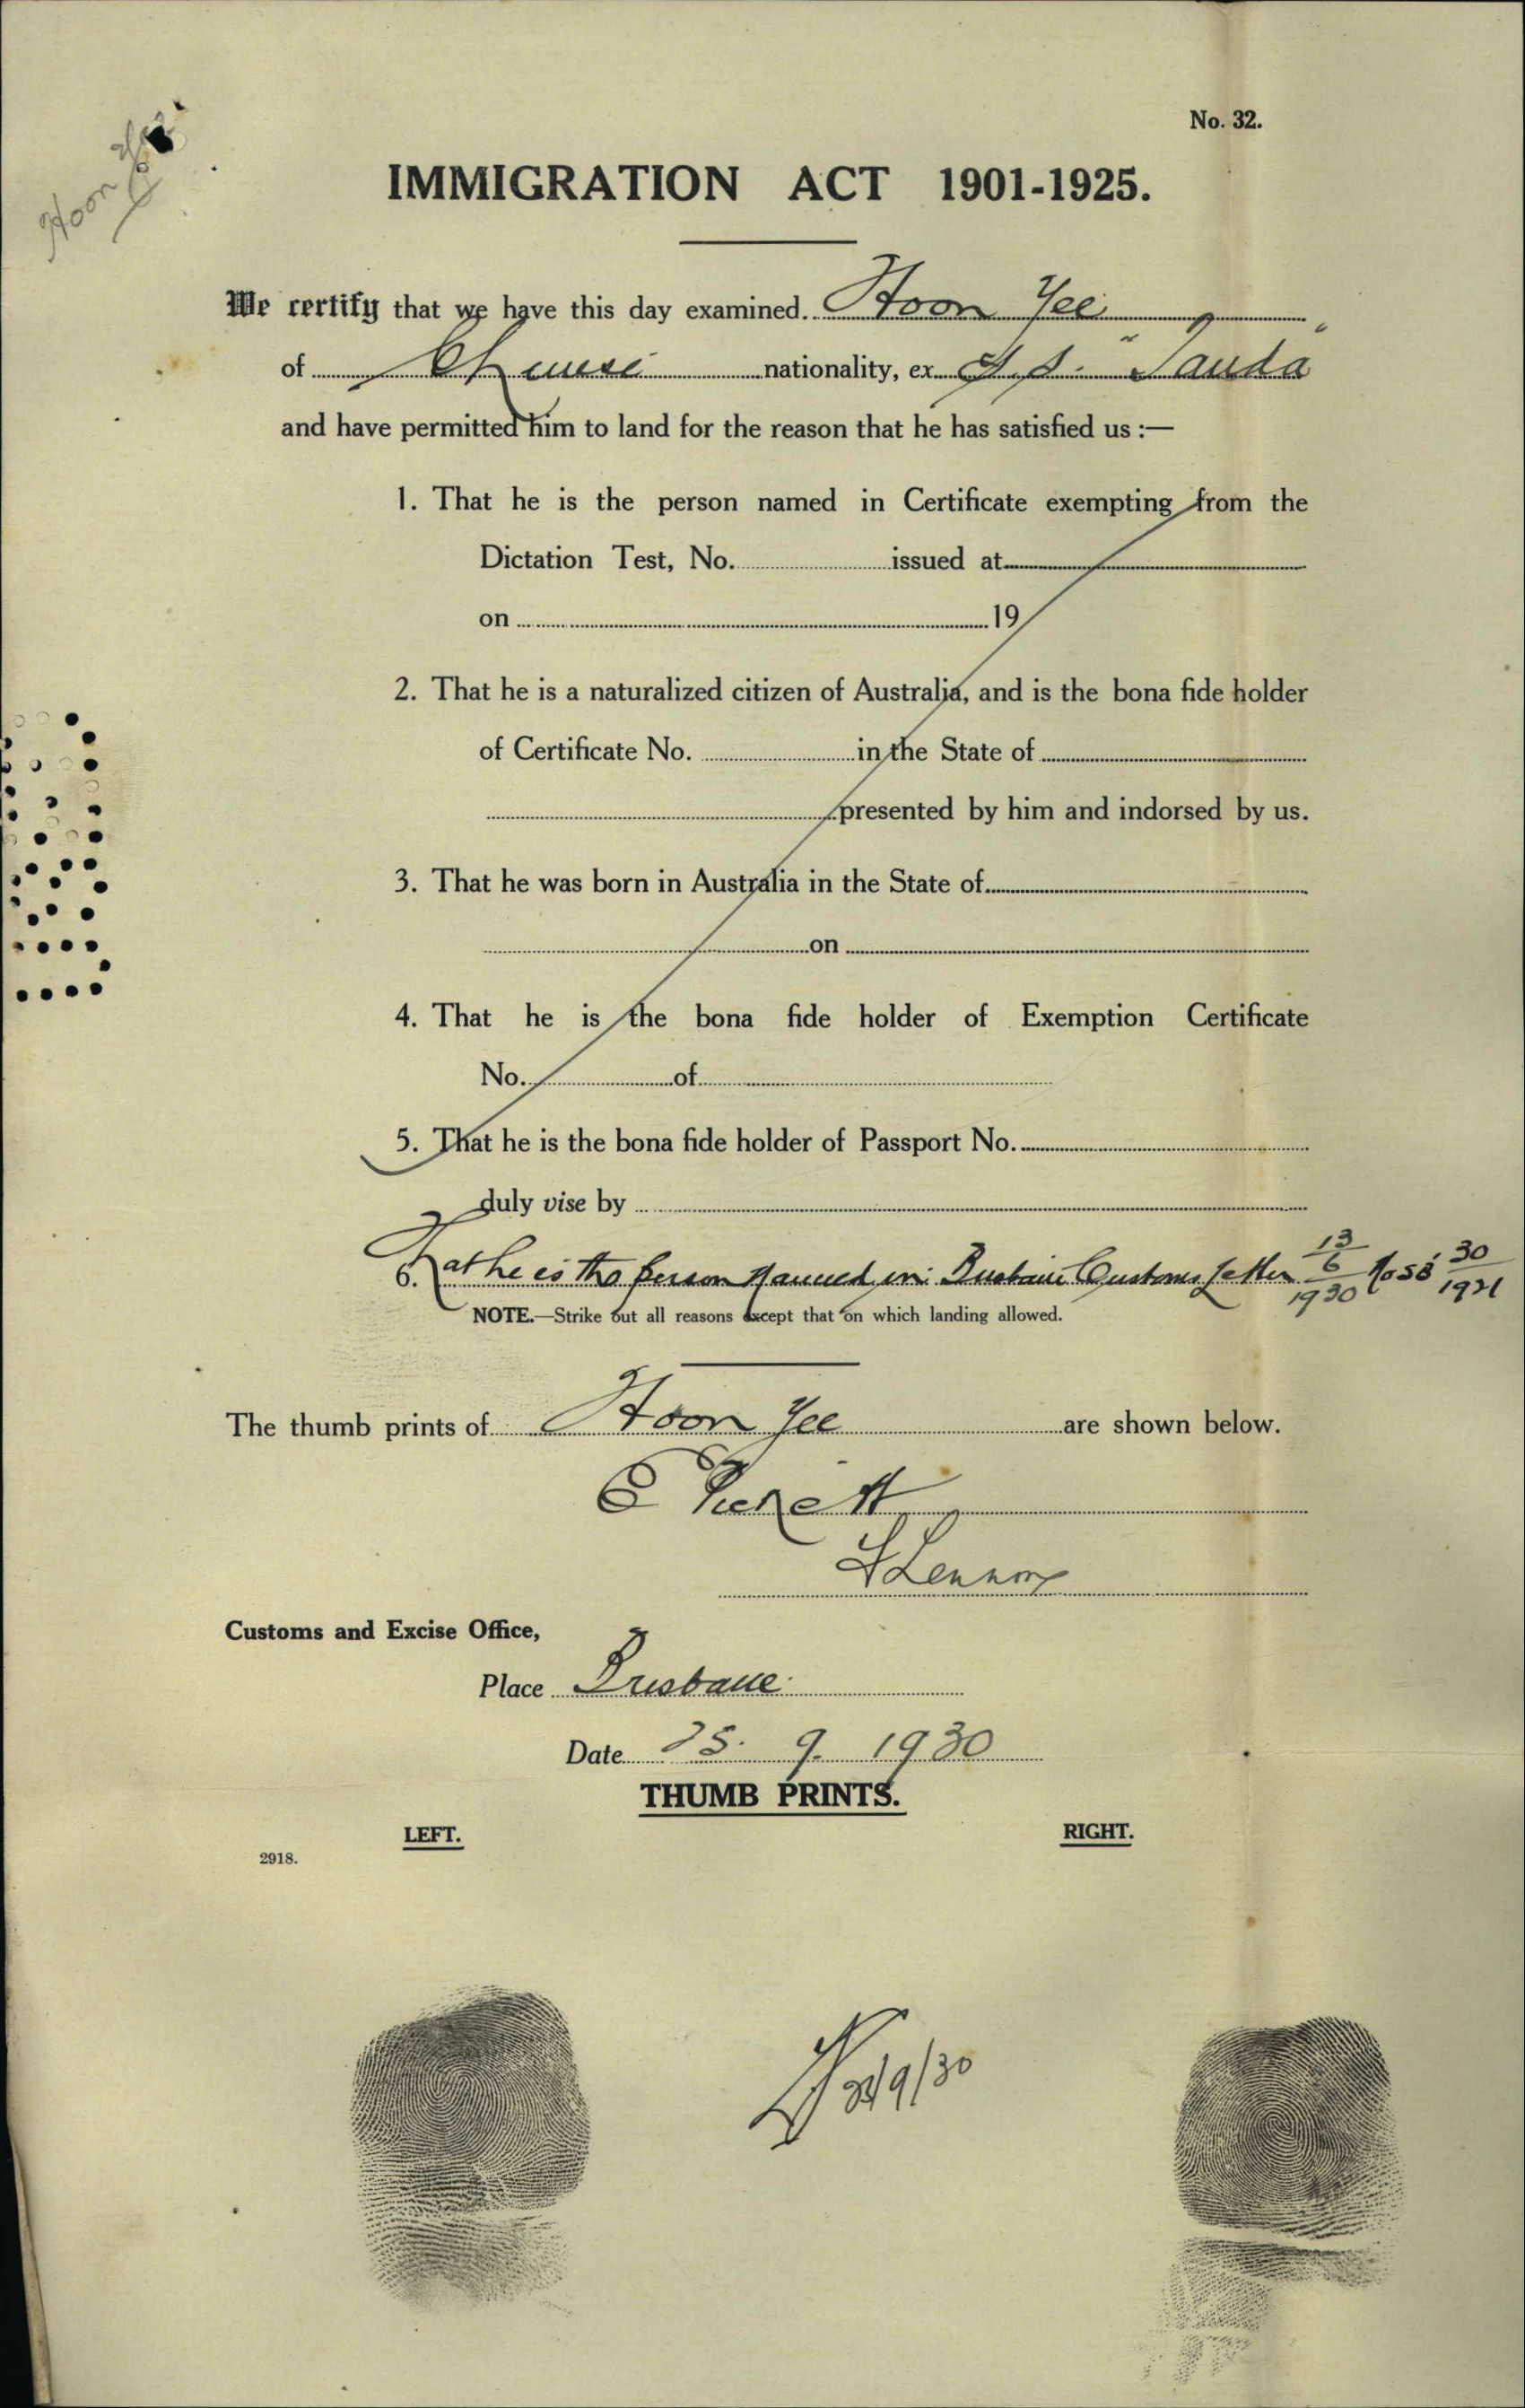 Hoon Yee
No. 32.
IMMIGRATION ACT 1901-1925.
We certify that we have this day examined Hoon Yee
of Chinese nationality, ex S.S. "Tanda"
and have permitted him to land for the reason that he has satisfied us :—
1. That he is the person named in Certificate exempting from the
Dictation Test, No. issued at
on 19
2. That he is a naturalized citizen of Australia, and is the bona fide holder
of Certificate No. in the State of
presented by him and indorsed by us.
3. That he was born in Australia in the State of
on
4. That he is the bona fide holder of Exemption Certificate
No. of
5. That he is the bona fide holder of Passport No.
duly vise by
6. That he is the person named in Brisbane Customs letter 13/6/1930
NOTE.—Strike out all reasons except that on which landing allowed.
The thumb prints of Hoon Yee are shown below.
Lennox
Customs and Excise Office,
Place Brisbane
Date 25. 9. 1930
THUMB PRINTS.
LEFT. RIGHT.
2918.